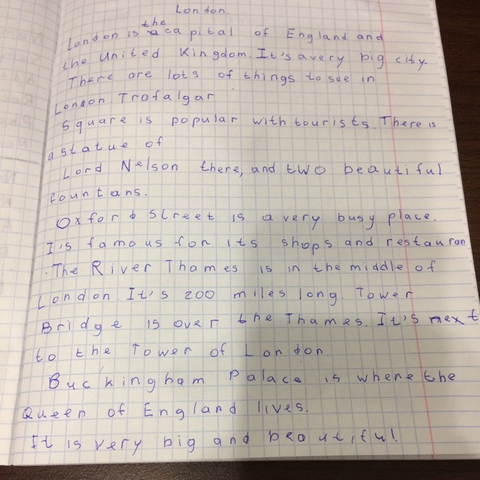 London
London is the capital of England and
the United Kingdom. It's a very big city
There are lots of things to see in
London Trafalgar
Square is popular with tourists. There is
a statue of
Lord Nelson there, and two beautiful
fountans.
Oxford Street is a very busy place.
I's famous for its shops and restauran
. The River Thames is in the middle of
London It's 200 miles long Tower
Bridge is over the Thames. It's next
to the Tower of London
Buckingham Palace is where the
Queen of England lives.
It is very big and beautiful.